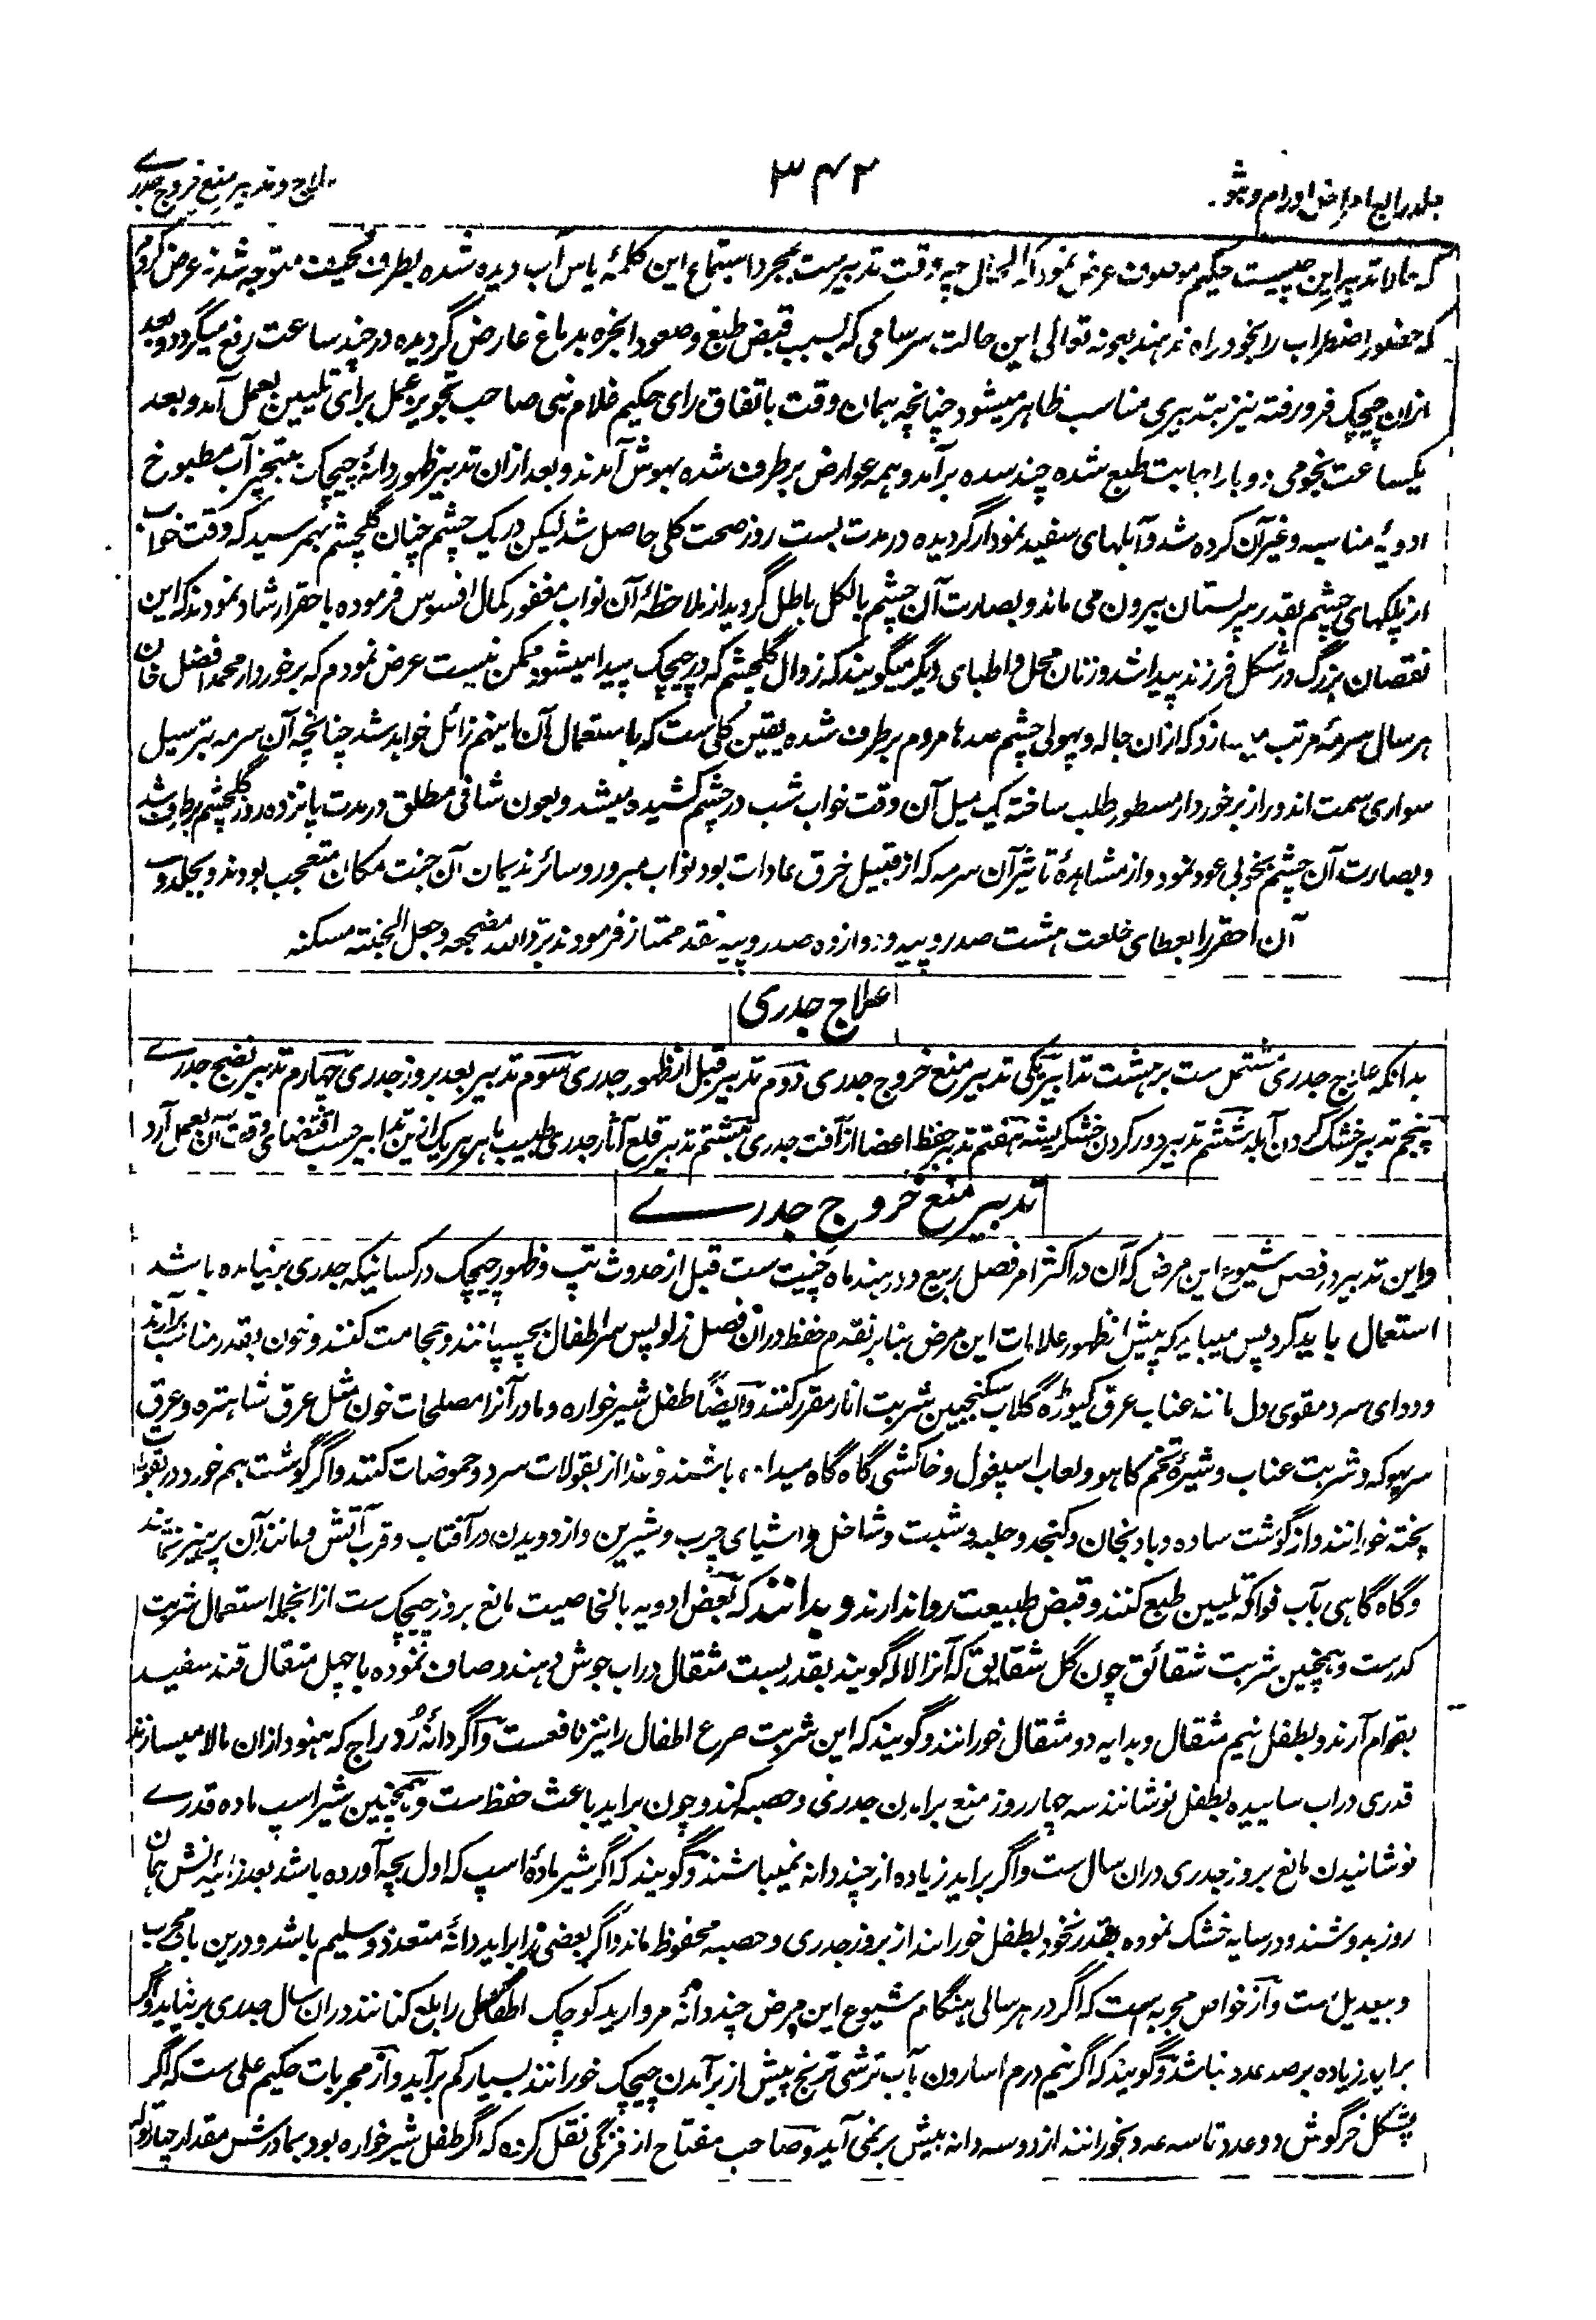 جلد رابع امراض اورام وبثو
۳۴۲
علاج وتدبیر منع خروج جدری
که مادا تدبیر این چیست حکیم موصوف عرض نمود که الحال چه وقت تدبیرست بمجرد استماع این کلمۀ یاس آب دیده شده بطرف نحیف متوجه شدند عرض کردم
که حضور اضطراب را بخود راه ندهند بعونه تعالی این حالت سرسامی که بسبب قبض طبع وصعود ابخره بدماغ عارض گردیده در چند ساعت رفع میگردد وبعد
ازان چیچک فرو رفته نیز بتدبیری مناسب ظاهر میشود چنانچه همان وقت باتفاق رای حکیم غلام نبی صاحب تجویز عمل برای تلیین بعمل آمد وبعد
یکساعت نجومی دو بار اجابت طبع شده چند سده برآمد وهمه عوارض برطرف شده بهوش آمدند وبعد ازان تدبیر ظهور دانۀ چیچک بتبخیر آب مطبوخ
ادویۀ مناسبه وغیر آن کرده شد وآبلهای سفید نمودار گردیده در مدت بست روز صحت کلی حاصل شد لیکن در یک چشم چنان گلچشم بهمرسید که وقت خواب
از پلکهای چشم بقدر سرپستان بیرون می ماند وبصارت آن چشم بالکل باطل گردید از ملاحظۀ آن نواب مغفور کمال افسوس فرموده باحقر ارشاد نمودند که این
نقصان بزرگ در شکل فرزند پیدا شد وزنان محل واطبای دیگر میگویند که زوال گلچشم که در چیچک پیدا میشود ممکن نیست عرض نمودم که برخوردار محمد افضل خان
هر سال سرمۀ مرتب میسازد که ازان جاله وپهولی چشم صدها مردم برطرف شده یقین کلی ست که باستعمال آن اینهم زائل خواهد شد چنانچه آن سرمه بترسیل
سواری سمت اندور از برخوردار مسطور طلب ساخته یک میل آن وقت خواب شب در چشم کشیده میشد وبعون شافی مطلق در مدت پانزده روز گلچشم برطرف شد
وبصارت آن چشم بخوبی عود نمود واز مشاهدۀ تاثیر آن سرمه که از قبیل خرق عادات بود نواب مبرور وسائر ندیمان آن جنت مکان متعجب بودند وبجلدوی
آن احقر را بعطای خلعت هشت صد روپیه ودوازده صد روپیه نقد ممتاز فرمودند برد الله مضجعه وجعل الجنته مسکنه
علاج جدری
بدانکه علاج جدری مشتمل ست بر هشت تدابیر یکی تدبیر منع خروج جدری دوم تدبیر قبل از ظهور جدری سوم تدبیر بعد بروز جدری چهارم تدبیر نضج جدری
پنجم تدبیر خشک کردن آبله ششم تدبیر دور کردن خشکریشه هفتم تدبیر حفظ اعضا از آفت جدری هشتم تدبیر قلع آثار جدری طبیب ماهر هر یک ازین تدابیر حسب اقتضای وقت آن بعمل آرد
تدبیر منع خروج جدری
واین تدبیر در فصل شیوع این مرض که آن در اکثر امر فصل ربیع ودر هند ماه چیت ست قبل از حدوث تپ وظهور چیچک در کسانیکه جدری برنیامده باشد
استعمال باید کرد پس میباید که پیش از ظهور علامات این مرض بنابر تقدم حفظ دران فصل زلو پس سر اطفال بچسپانند وحجامت کنند وخون بقدر مناسب برآرند
ودوای سرد مقوی دل مانند عناب عرق کیوڑه گلاب سکنجبین شربت انار مقرر کنند وایضاً طفل شیرخواره ومادر آنرا مصلحات خون مثل عرق شاهتره وعرق
سرپهوکه وشربت عناب وشیرۀ تخم کاهو ولعاب اسپغول وخاکشی گاه گاه میداده باشند وغذا از بقولات سرد وحموضات کنند واگر گوشت بهم خورد در بقولات
پخته خورانند واز گوشت ساده وبادنجان وکنجد وحلبه وشبت وشاخل واشیای چرب وشیرین واز دویدن در آفتاب وقرب آتش ومانند آن پرهیز نمایند
وگاه گاهی بآب فواکه تلیین طبع کنند وقبض طبیعت روا ندارند وبدانند که بعض ادویه بالخاصیت مانع بروز چیچک ست ازانجمله استعمال شربت
کدرست وهمچنین شربت شقائق چون گل شقایق که آنرا لاله گویند بقدر بست مثقال در اب جوش دهند وصاف نموده با چهل مثقال قند سفید
بقوام آرند وبطفل نیم مثقال وبدایه دو مثقال خورانند وگویند که این شربت صرع اطفال را نیز نافعست واگر دانۀ رُدراج که هنود ازان مالا میسازند
قدری در اب ساییده بطفل نوشانند سه چهار روز منع برامدن جدری وحصبه کند وچون براید باعث حفظ ست وهمچنین شیر اسپ ماده قدری
نوشانیدن مانع بروز جدری دران سال ست واگر براید زیاده از چند دانه نمیباشند وگویند که اگر شیر مادۀ اسپ که اول بچه آورده باشد بعد زائیدنش همان
روز بدوشند ودر سایه خشک نموده بقدر نخود بطفل خورانند از بروز جدری وحصبه محفوظ ماند واگر بعضی را براید دانۀ متعدد وسلیم باشد ودرین باب مجرب
وبیعدیل ست واز خواص مجربه ست که اگر در هر سالی هنگام شیوع این مرض چند دانۀ مروارید کوچک اطفال را بلع کنانند دران سال جدری برنیاید واگر
براید زیاده بر صد عدد نباشد وگویند که اگر نیم درم اسارون بآب ترشی ترنج پیش از برآمدن چیچک خورانند بسیار کم برآید واز مجربات حکیم علی ست که اگر
پشکل خرگوش دو عدد تا سه عدد بخورانند از دو سه دانه بیش برنمی آید وصاحب مفتاح از فرنگی نقل کرده که اگر طفل شیرخواره بود بمادرش مقدار چهار توله